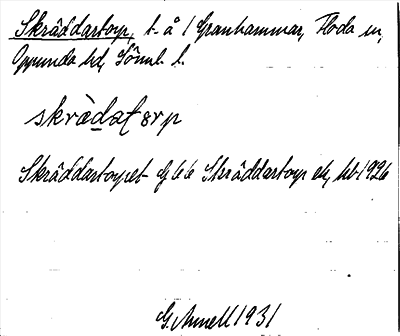 Skräddartorp, t. å 1 Granhammar, Floda sn,
Oppunda hd, Söml. l.
skrädatorp
Skräddartorpet G Skräddartorp ek, hb 1926
G. Arnell 1931